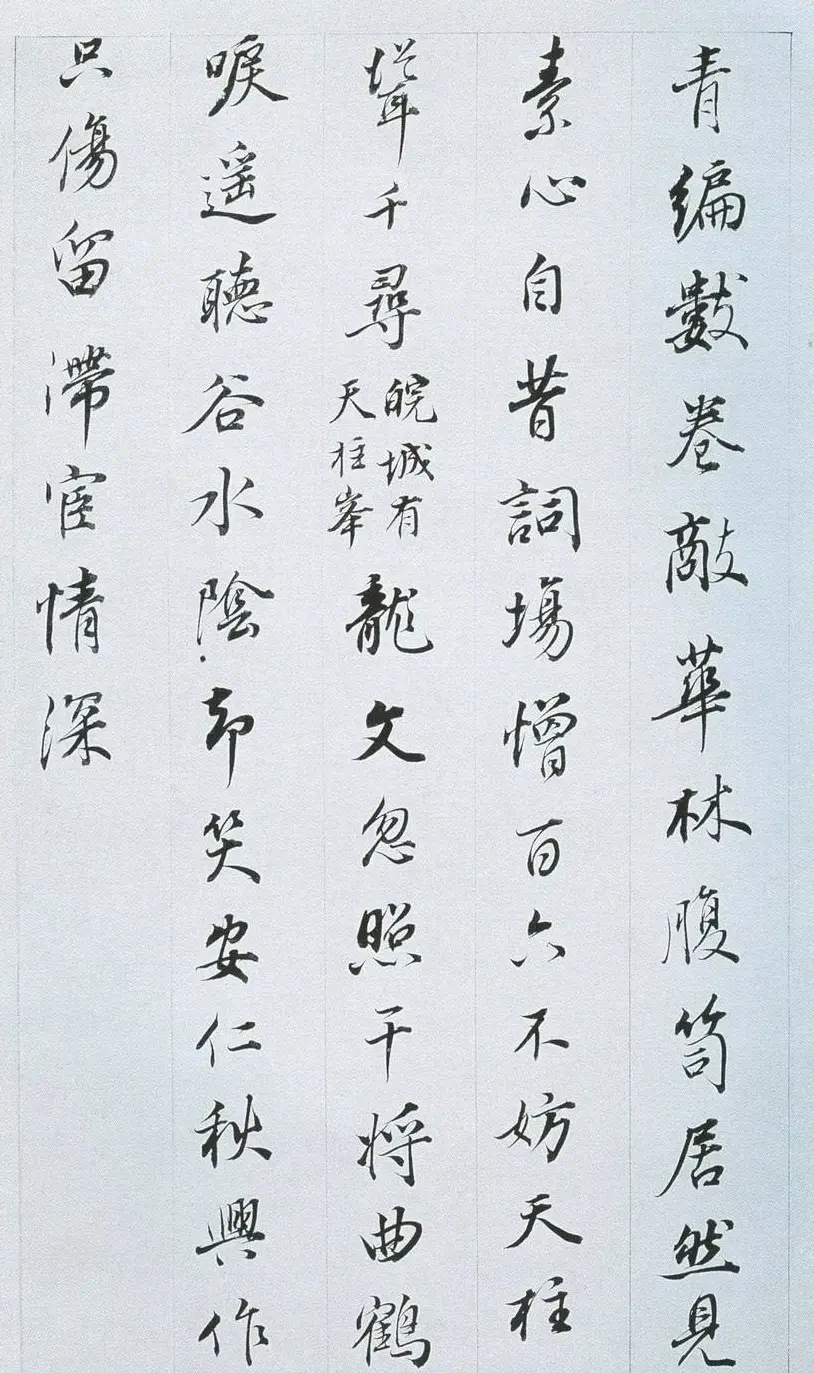 青編數卷敵華林腹笥居然見
素心自昔詞場憎百六不妨天柱
聳千尋皖城有天柱峯龍文忽照干將曲鶴
唳遥聽谷水陰却笑安仁秋興作
只傷留滯宦情深